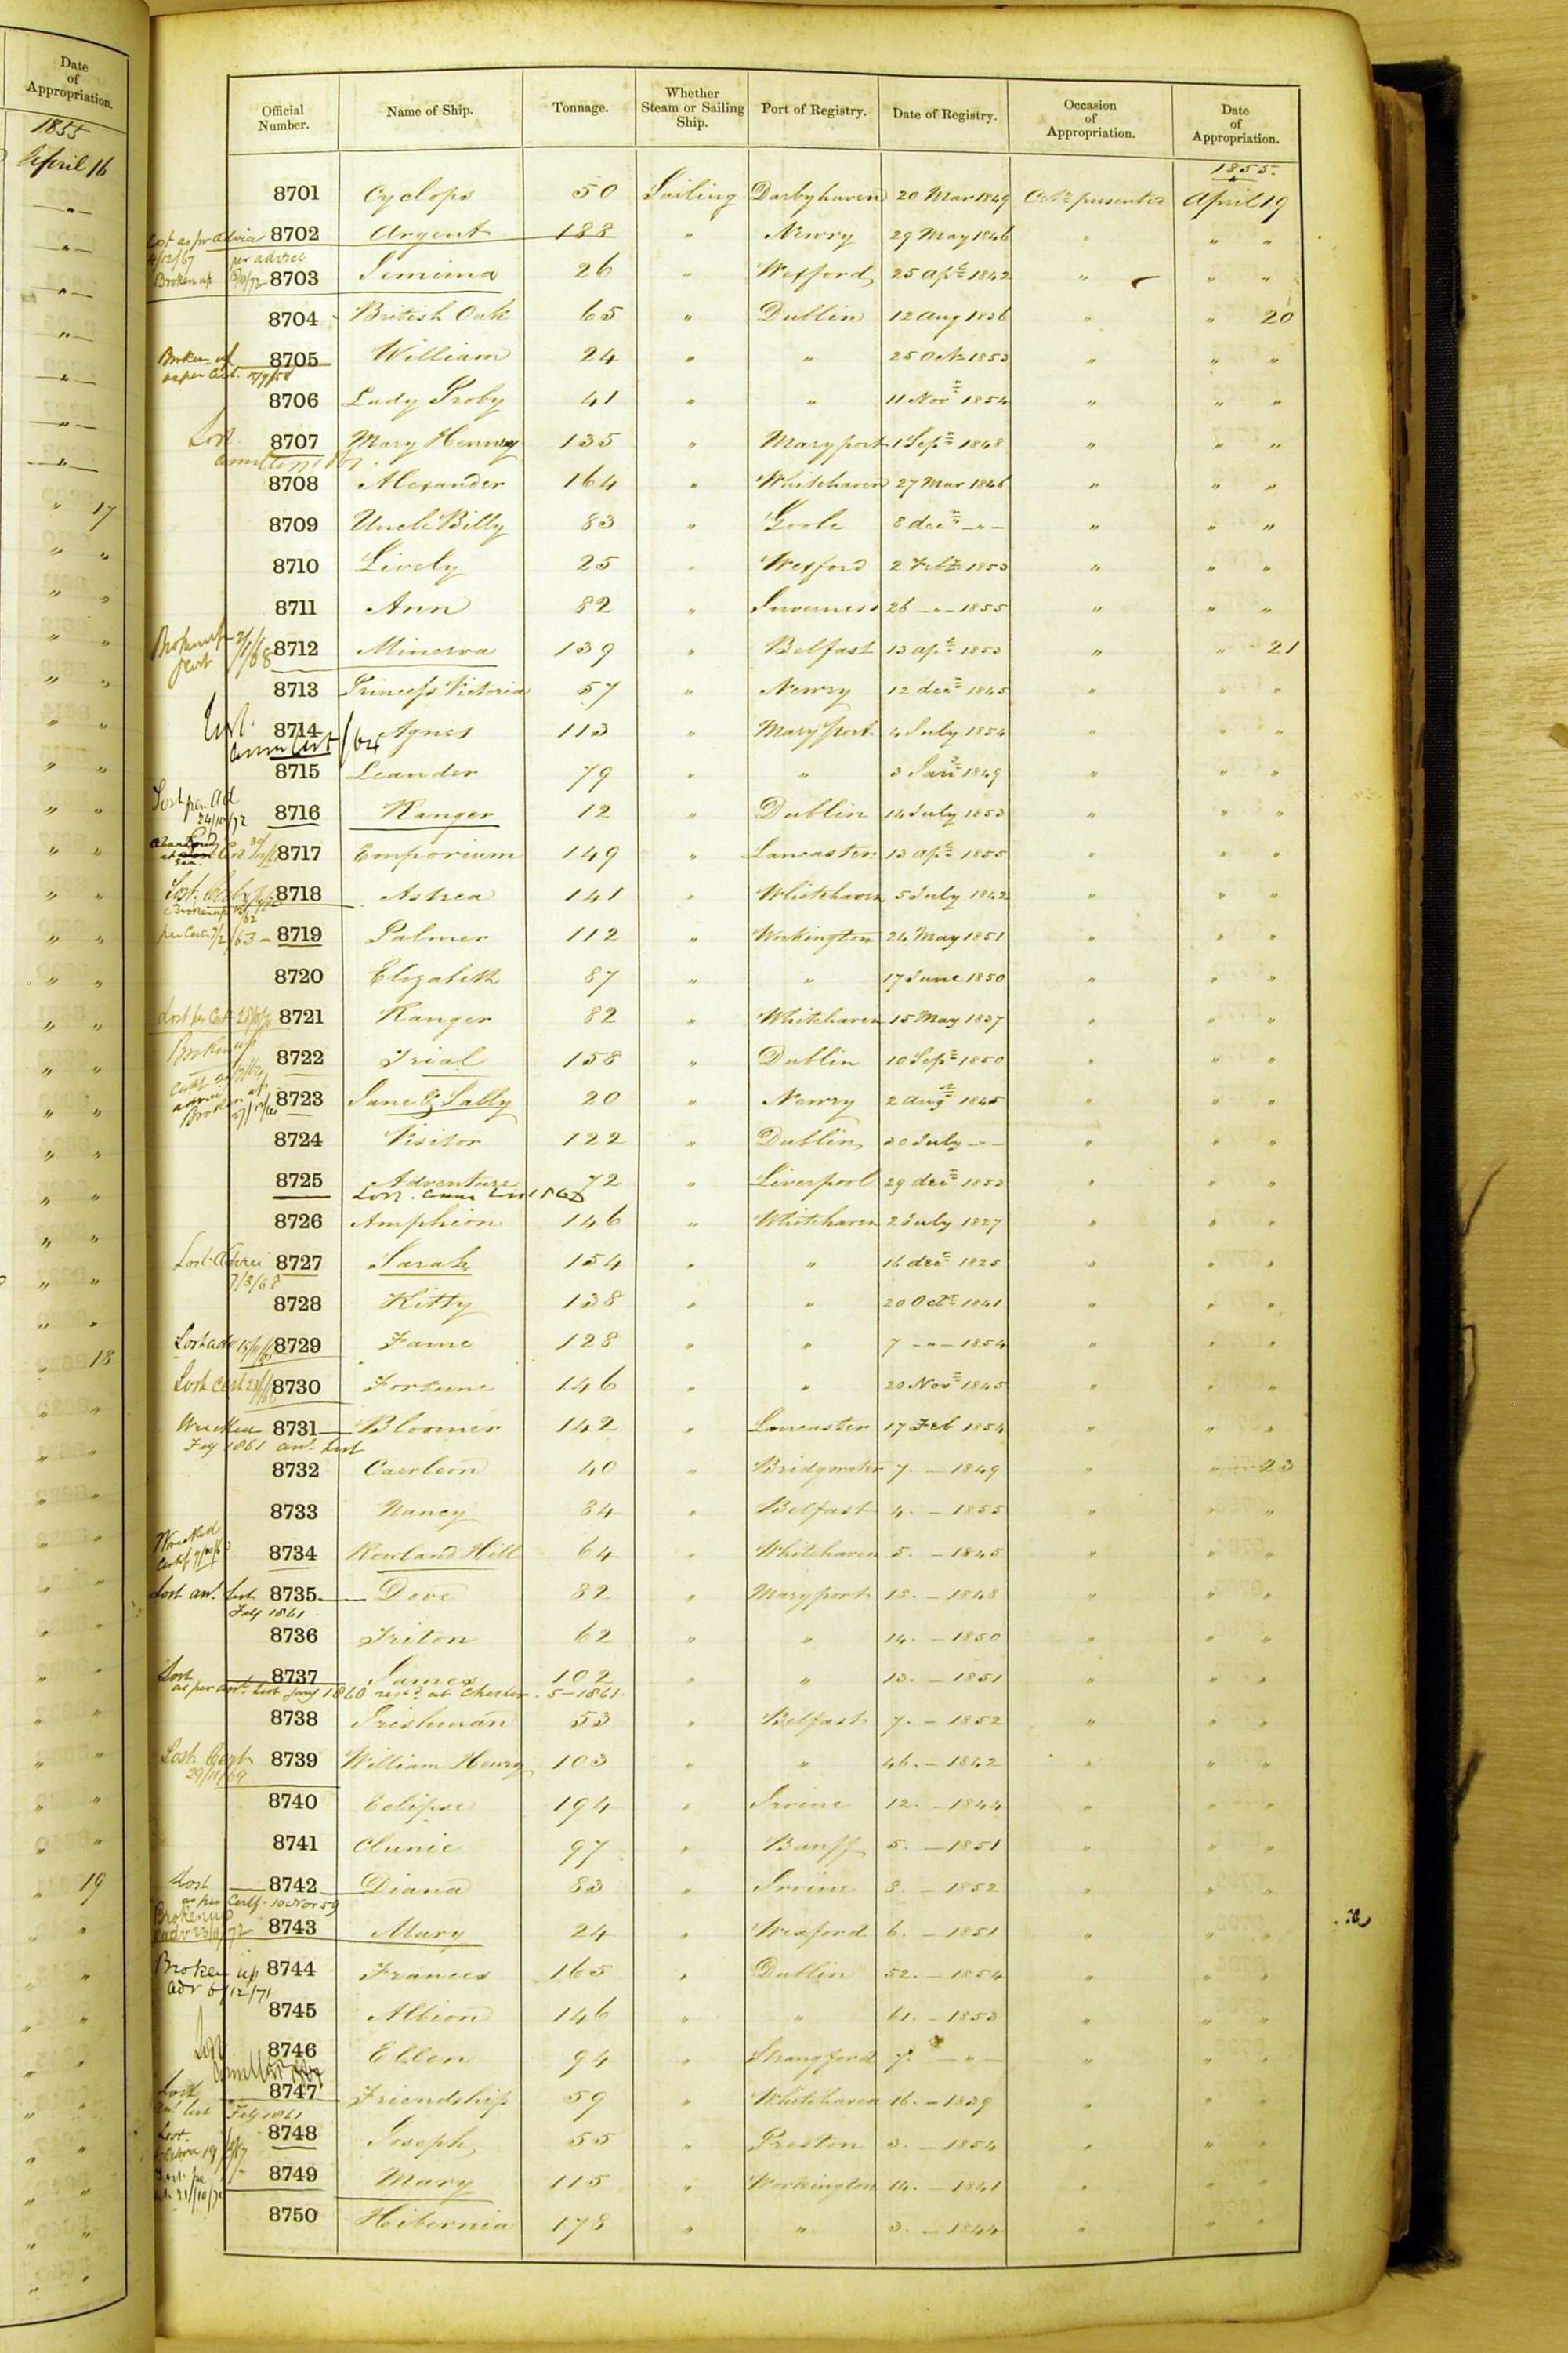 Date of Appropriation.
1855
April 16
" 17
" 18
" 19
Official Number. Name of Ship. Tonnage. Whether Steam or Sailing Ship. Port of Registry. Date of Registry. Occasion of Appropriation. Date of Appropriation.
1855.
8701 Cyclops 50 Sailing Darbyhaven 20 Mar 1849 April 19
Lost as per advice 8702 Argent 188 " Newry 29 May 1846 " " "
4/12/67 per advice
Broken up 8703 Jemima 26 " Wexford 25 Apl 1842 " " "
8704 British Oak 65 " Dublin 12 Aug 1836 " " 20
Broken up 8705 William 24 " " 25 Oct 1853 " " "
as per
8706 Lady Proby 41 " " 11 Nov 1854 " " "
Lost 8707 Mary Henney 135 " Maryport 1 Sep 1848 " " "
8708 Alexander 164 " Whitehaven 27 Mar 1846 " " "
8709 Uncle Billy 83 " Goole 8 Dec — " — " " "
8710 Lively 25 " Wexford 2 Feb 1853 " " "
8711 Ann 82 " Inverness 26 — " — 1855 " " "
Broken up 8712 Minerva 139 " Belfast 13 Apl 1853 " " 21
8713 Princess Victoria 57 " Newry 12 Dec 1845 " " "
Lost 8714 Agnes 113 " Maryport 4 July 1854 " " "
8715 Leander 79 " " 3 Jan 1849 " " "
Lost per Ad
24/10/72 8716 Ranger 12 " Dublin 14 July 1853 " " "
8717 Emporium 149 " Lancaster 13 Apl 1855 " " "
Lost 8718 Astrea 141 " Whitehaven 5 July 1842 " " "
Broken up
per Cert 8719 Palmer 112 " Workington 24 May 1851 " " "
8720 Elizabeth 87 " " 17 June 1850 " " "
Lost per Cert 8721 Ranger 82 " Whitehaven 15 May 1837 " " "
Broken up 8722 Trial 158 " Dublin 10 Sep 1850 " " "
Broken up 8723 Jane & Sally 20 " Newry 2 Aug 1845 " " "
8724 Visitor 122 " Dublin 30 July — " — " " "
8725 Adventure 72 " Liverpool 29 Dec 1853 " " "
Lost.
8726 Amphion 146 " Whitehaven 2 July 1827 " " "
Lost Advice 8727 Sarah 154 " " 16 Dec 1825 " " "
7/3/68
8728 Kitty 138 " " 20 Oct 1841 " " "
Lost adv 8729 Fame 128 " " 7 — " — 1854 " " "
Lost Cert 8730 Fortune 146 " " 20 Nov 1845 " " "
Wrecked 8731 Bloomer 142 " Lancaster 17 Feb 1854 " " "
Feby 1861 anl. List
8732 Caerleon 40 " Bridgwater 7. — 1849 " " 23
8733 Nancy 84 " Belfast 4. — 1855 " " "
Wrecked 8734 Rowland Hill 64 " Whitehaven 5. — 1845 " " "
Lost anl. List 8735 Dove 82 " Maryport 18. — 1848 " " "
Feby 1861
8736 Triton 62 " " 14. — 1850 " " "
Lost 8737 James 102 " " 13. — 1851 " " "
as per anl. List Jany 1860 regd. at Chester. 5-1861.
8738 Irishman 53 " Belfast 7. — 1852 " " "
Lost Cert 8739 William Henry 103 " " 46. — 1842 " " "
29/11/69
8740 Eclipse 194 " Irvine 12. — 1844 " " "
8741 Clunie 97 " Banff 5. — 1851 " " "
Lost 8742 Diana 83 " Irvine 8. — 1852 " " "
as per Certf. 10 Nov 59
Broken up 8743 Mary 24 " Wexford 6. — 1851 " " "
Broken up 8744 Frances 165 " Dublin 52. — 1854 " " "
Adv 6/12/71
8745 Albion 146 " " 61. — 1853 " " "
Lost 8746 Ellen 94 " Strangford 7. — " — " " "
Lost 8747 Friendship 59 " Whitehaven 16. — 1839 " " "
Anl List Feby 1861
Lost. 8748 Joseph 55 " Preston 3. — 1854 " " "
8749 Mary 115 " Workington 14. — 1841 " " "
8750 Hibernia 178 " " 3. — 1844 " " "